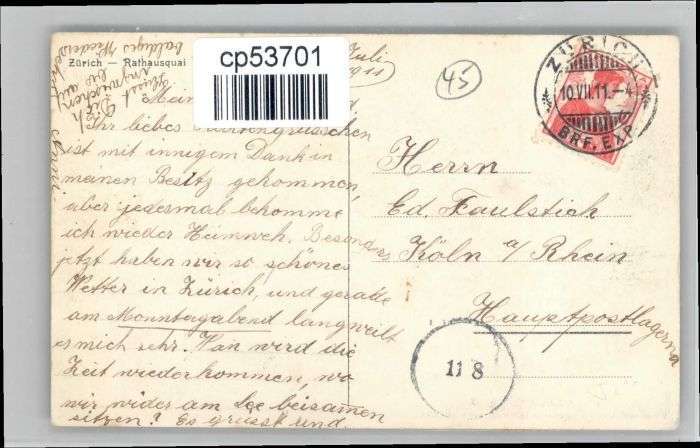 Zürich — Rathausquai
cp53701
Juli
1911
Mein
Ihr liebes Kartengrüsschen
ist mit innigem Dank in
meinen Besitz gekommen,
aber jedesmal bekomme
ich wieder Heimweh. Besonders
jetzt haben wir so schönes
Wetter in Zürich, und gerade
am Monntagabend langweilt
es mich sehr. Wan wird die
Zeit wiederkommen, wo
wir wider am See beisamen
sitzen? Es grüsst und
küsst
Dich
inzwischen
bis auf
baldiges Wiedersehen
45
ZÜRICH
10.VII.11.–4
BRF. EXP.
Herrn
Ed. Faulstich
Köln a/Rhein
Hauptpostlagernd
118